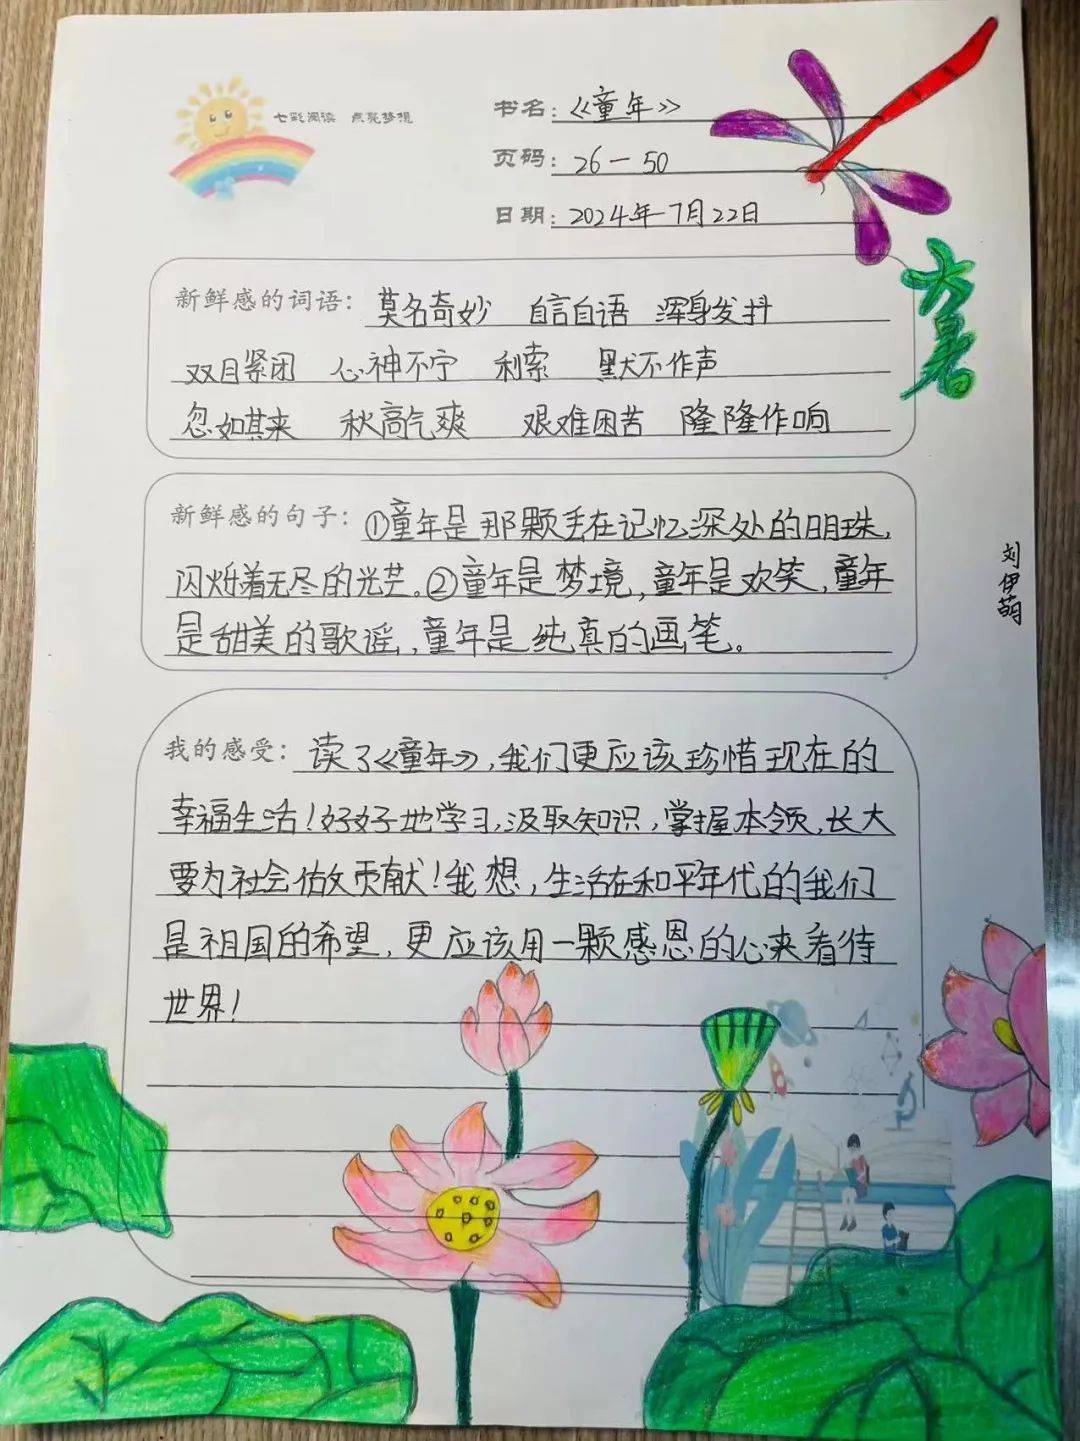 七彩阅读 点亮梦想
书名：《童年》
页码：26—50
日期：2024年7月22日
大暑
新鲜感的词语：莫名奇妙 自言自语 浑身发抖
双目紧闭 心神不宁 利索 默不作声
忽如其来 秋高气爽 艰难困苦 隆隆作响
新鲜感的句子：①童年是那颗丢在记忆深处的明珠，
闪烁着无尽的光芒。②童年是梦境，童年是欢笑，童年
是甜美的歌谣，童年是纯真的画笔。
刘伊萌
我的感受：读了《童年》，我们更应该珍惜现在的
幸福生活！好好地学习，汲取知识，掌握本领，长大
要为社会做贡献！我想，生活在和平年代的我们
是祖国的希望，更应该用一颗感恩的心来看待
世界！